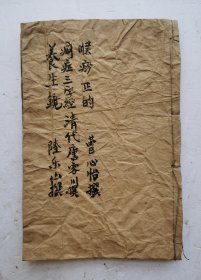 喉痧正的 曹心怡撰
痢症三字經 清代唐家圳撰
養生鏡 陸乐山撰